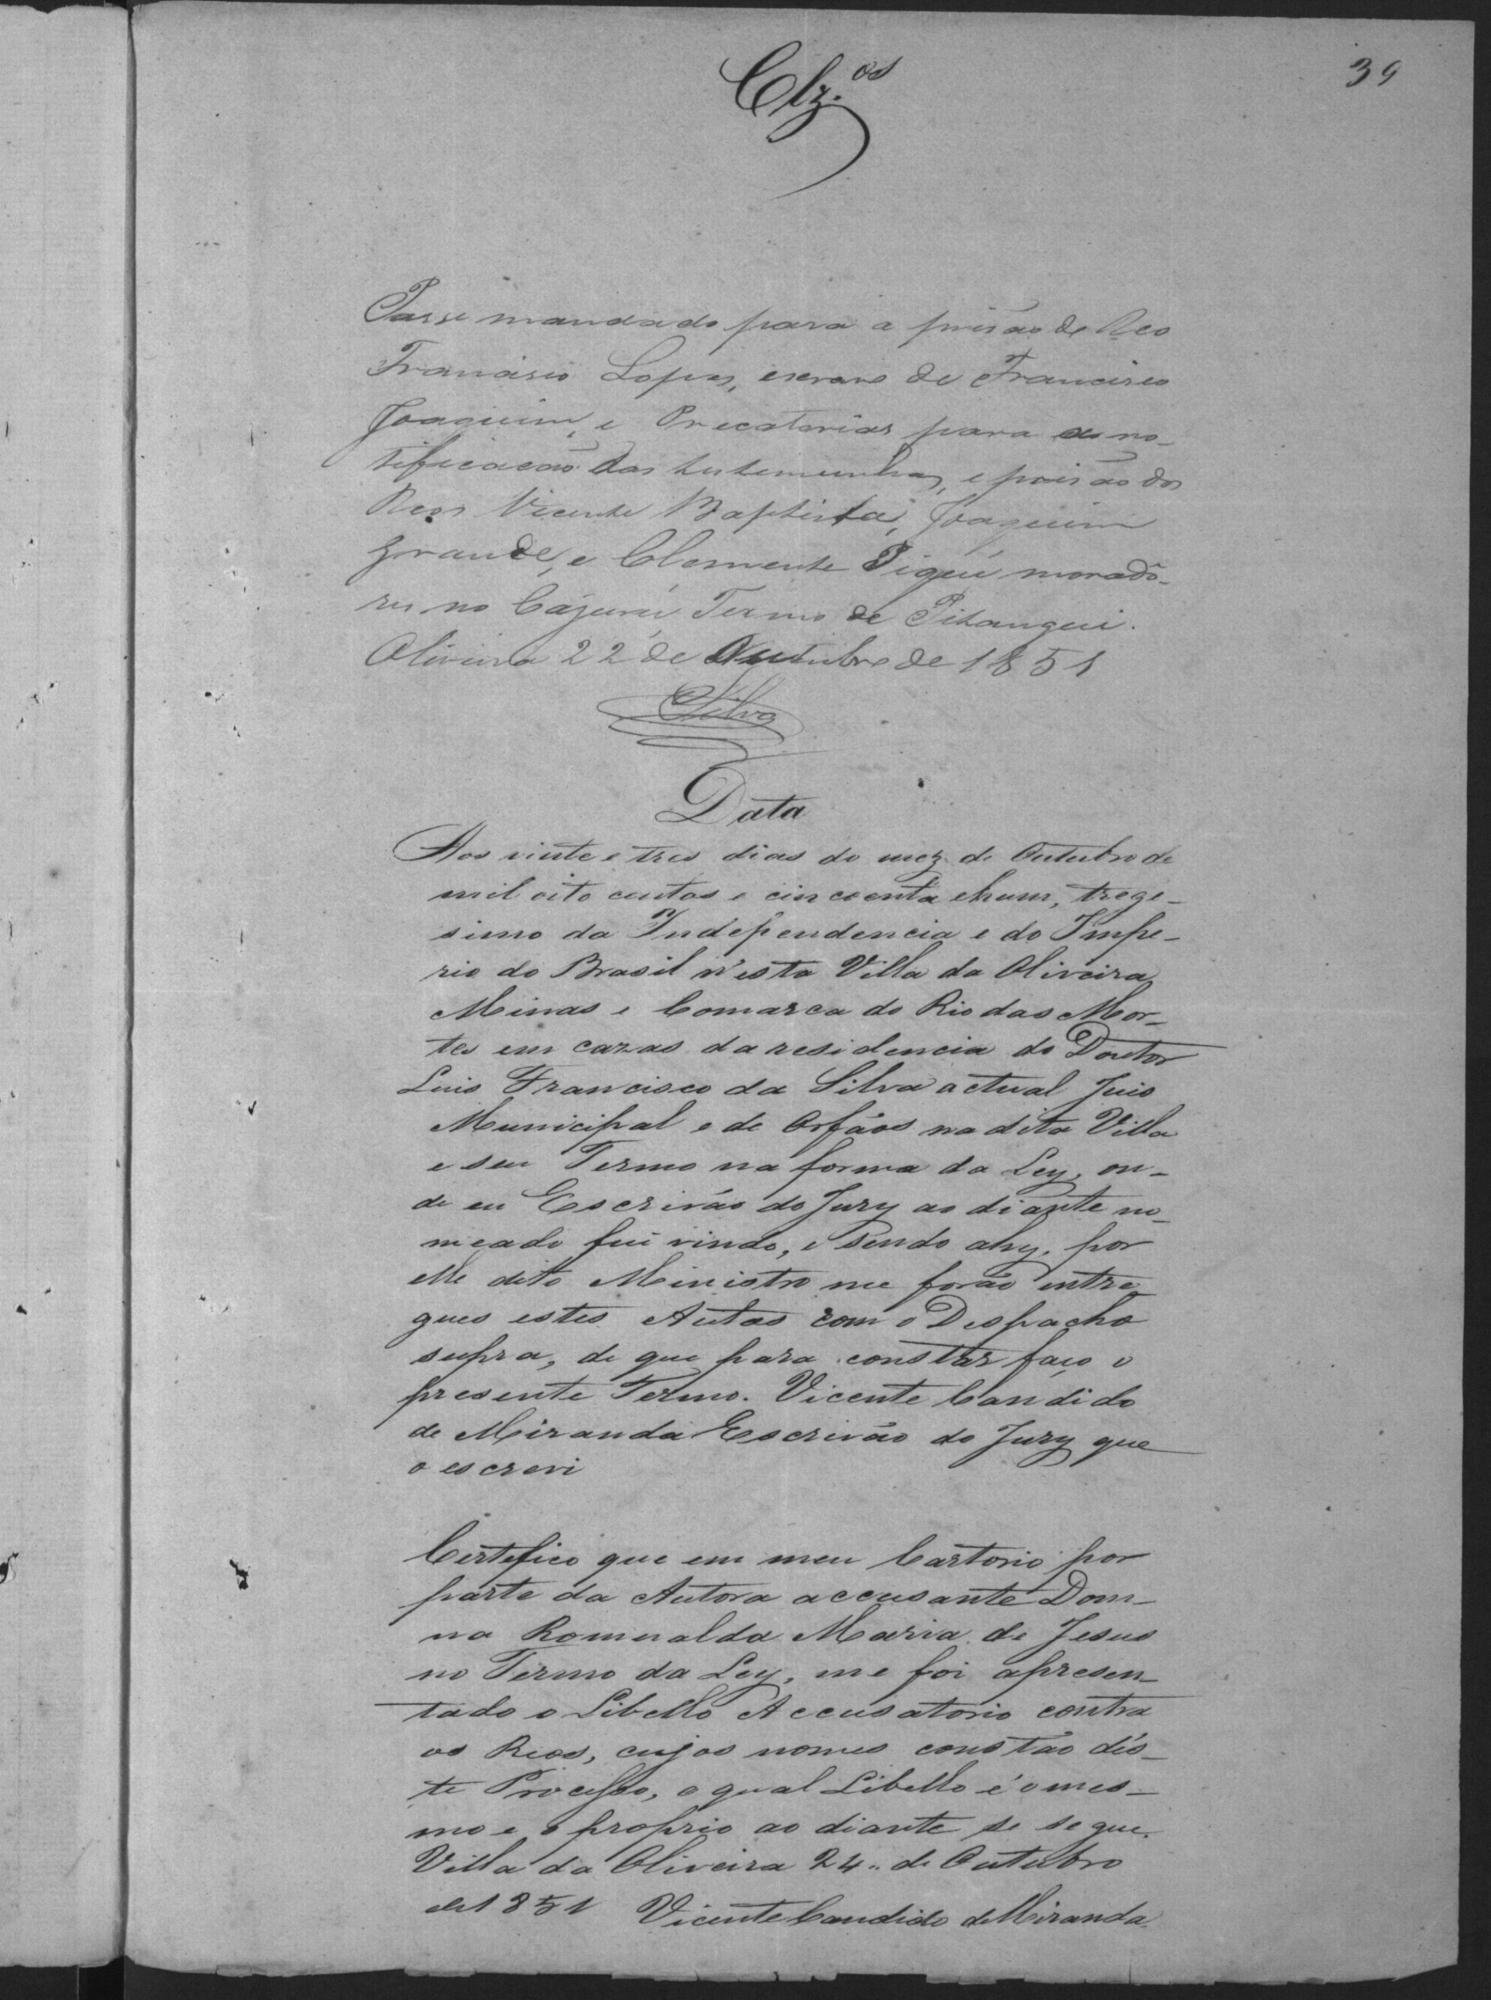 39
Clz.os
Passe mandado para a prisão do Reo
Francisco Lopes, escravo de Francisco
Joaquim, e Precatorias para as no-
tificacão das testemunhas, e prisão dos
Reos Vicente Baptista, Joaquim
grande, e Clemente Pigui morado-
res no Cajurú Termo de Pitangui.
Oliveira 22 de Outubro de 1851
Silva
Data
Aos vinte e tres dias do mez de Outubro de
mil oito centos e cincoenta ehum, trege-
simo da Independencia e do Impe-
rio do Brasil n'esta Villa da Oliveira
Minas e Comarca do Rio das Mor-
tes em cazas da residencia do Doutor
Luis Francisco da Silva actual Juis
Municipal e de Orfãos na dita Villa
e seu Termo na forma da Ley, on-
de eu Escrivão do Jury ao diante no-
meado fui vindo, e sendo ahy, por
elle dito Ministro me forão entre
gues estes Autos com o Despacho
supra, de que para constar faço o
presente Termo. Vicente Candido
de Miranda Escrivão do Jury que
o escrevi
Certefico que em meu Cartorio por
parte da Autora accusante Dom-
na Romualda Maria de Jesus
no Termo da Ley, me foi apresen-
tado o Libello Accusatorio contra
os Reos, cujos nomes constão dés-
te Processo, o qual Libello é o mes-
mo e o proprio ao diante se segue.
Villa da Oliveira 24 de Outubro
de 1851 Vicente Candido de Miranda